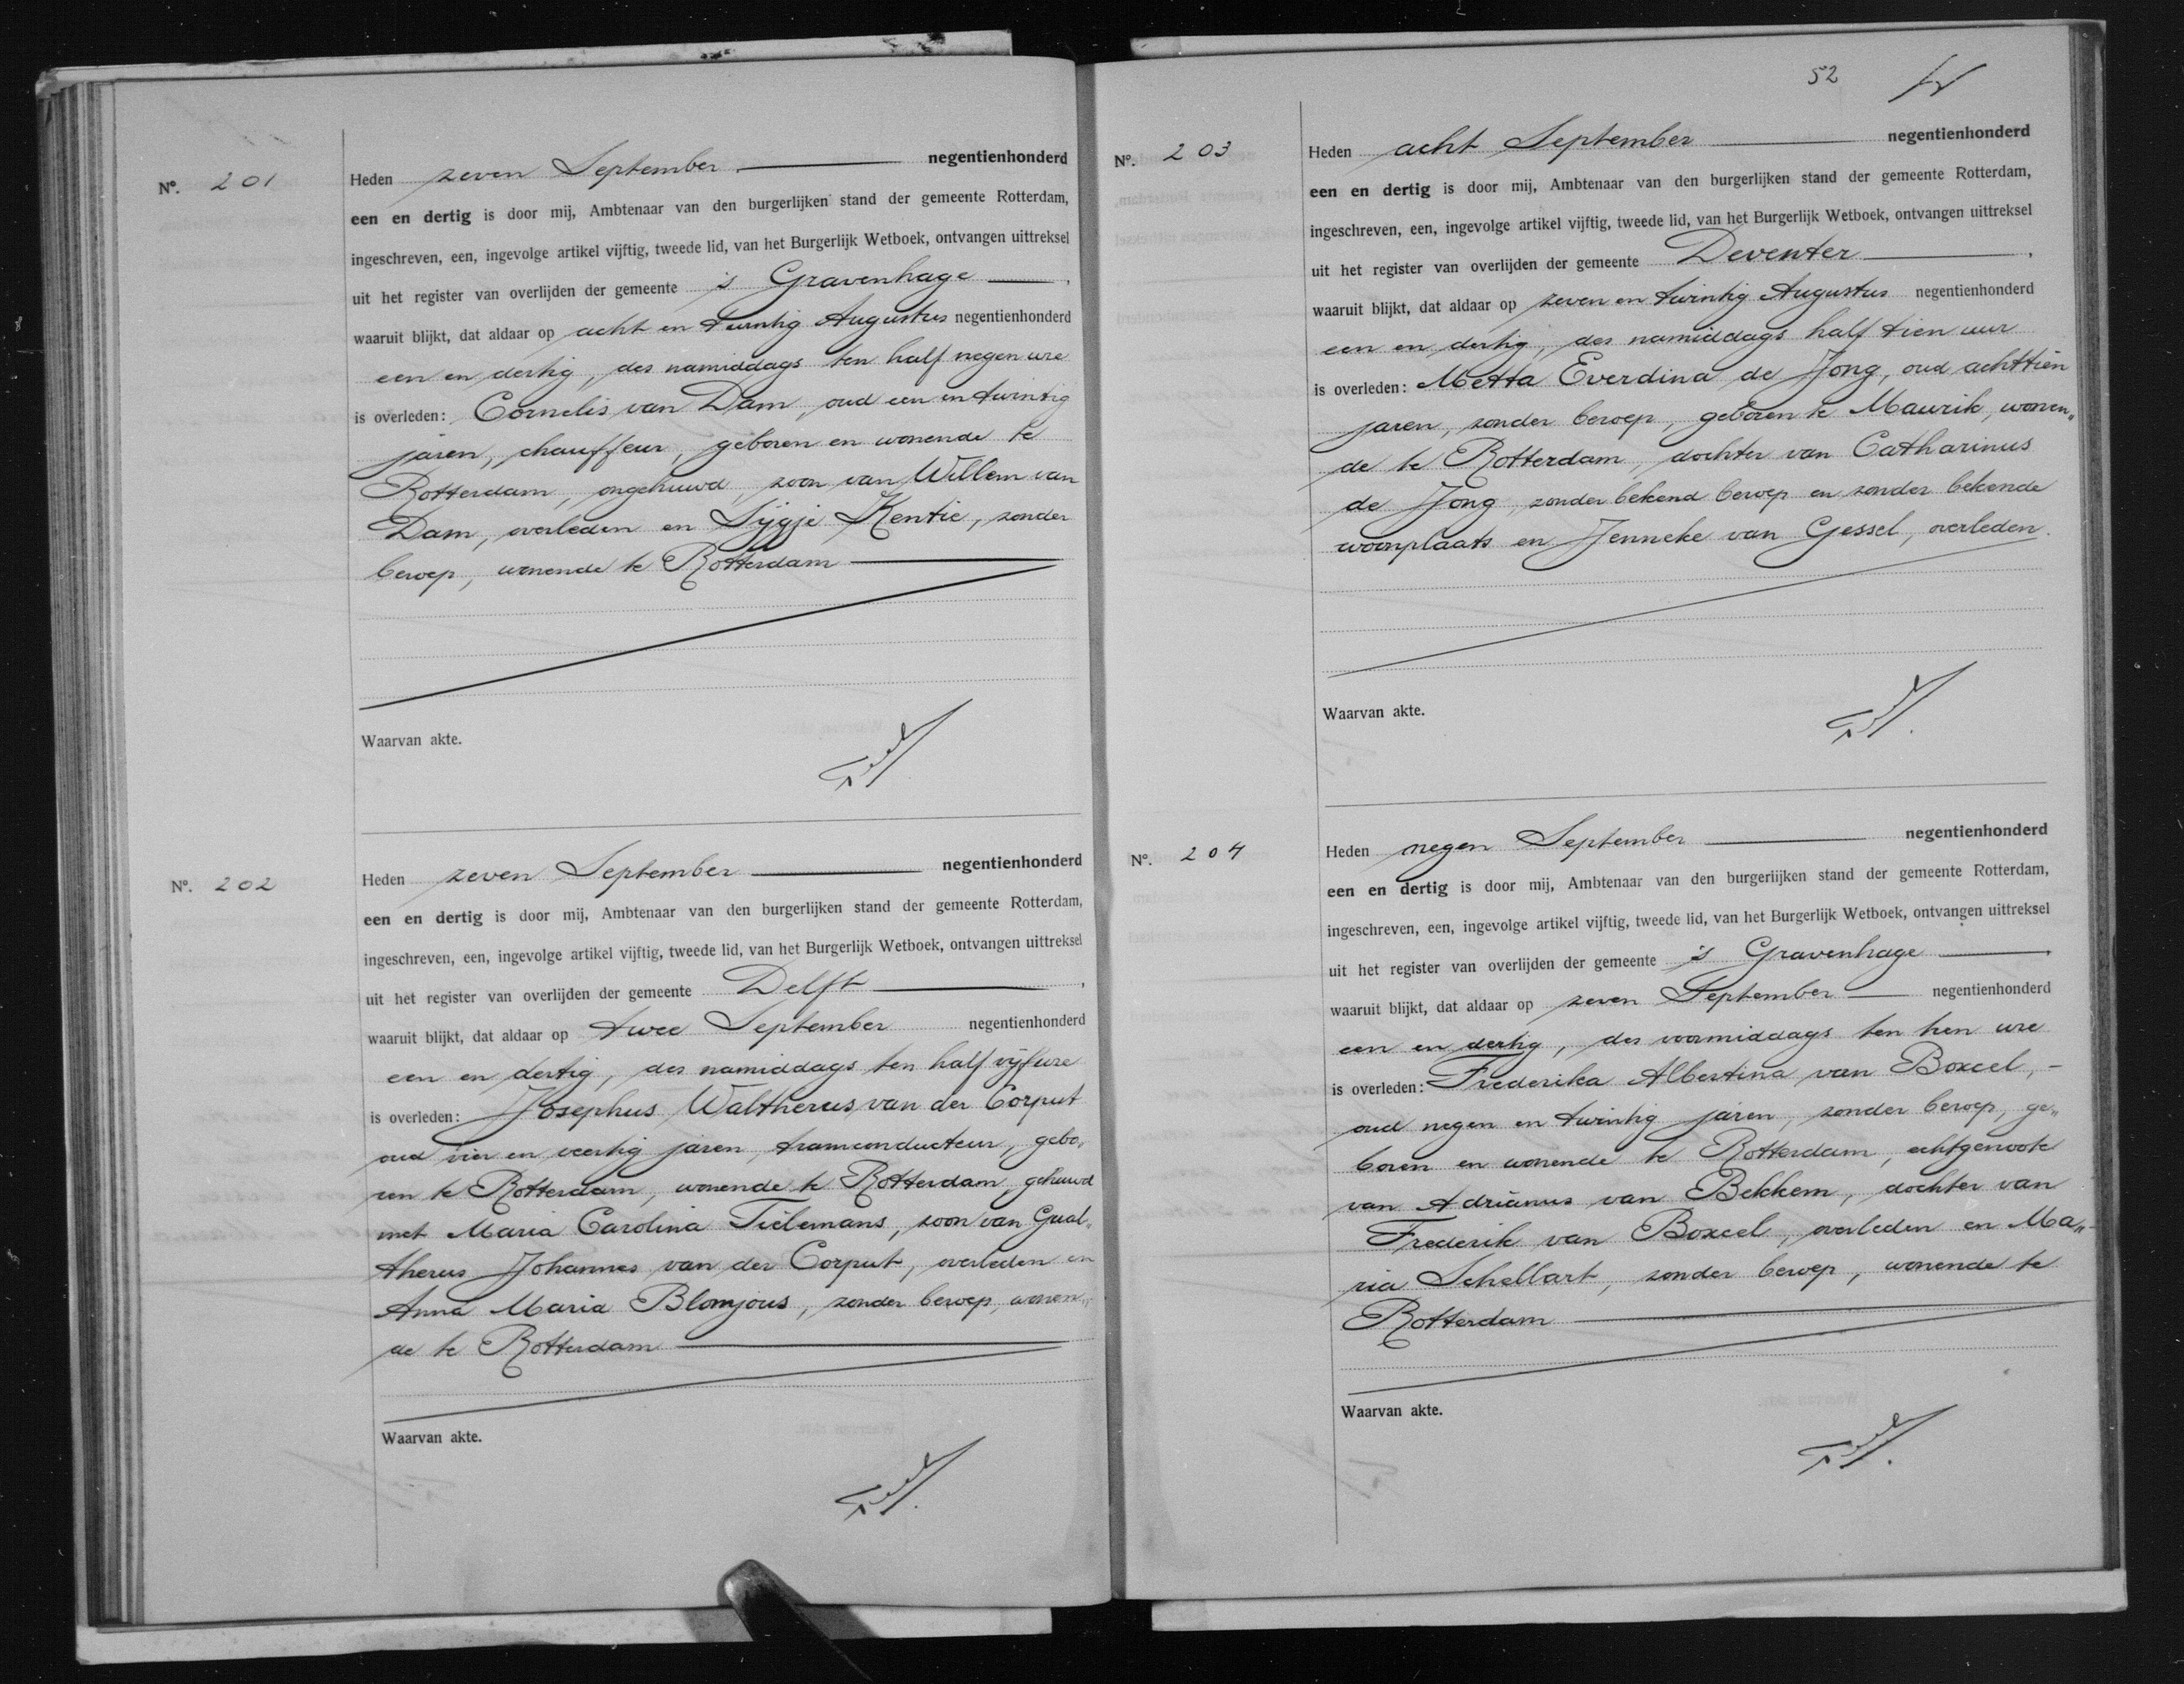 Nº. 201
Heden zeven September negentienhonderd
een en dertig is door mij, Ambtenaar van den burgerlijken stand der gemeente Rotterdam,
ingeschreven, een, ingevolge artikel vijftig, tweede lid, van het Burgerlijk Wetboek, ontvangen uittreksel
uit het register van overlijden der gemeente 's Gravenhage ,
waaruit blijkt, dat aldaar op acht en twintig Augustus negentienhonderd
een en dertig, des namiddags ten half negen ure
is overleden: Cornelis van Dam, oud een en twintig
jaren, chauffeur, geboren en wonende te
Rotterdam, ongehuwd, zoon van Willem van
Dam, overleden en Sijgje Kentie, zonder
beroep, wonende te Rotterdam
Waarvan akte.
Nº. 202
Heden zeven September negentienhonderd
een en dertig is door mij, Ambtenaar van den burgerlijken stand der gemeente Rotterdam,
ingeschreven, een, ingevolge artikel vijftig, tweede lid, van het Burgerlijk Wetboek, ontvangen uittreksel
uit het register van overlijden der gemeente Delft ,
waaruit blijkt, dat aldaar op twee September negentienhonderd
een en dertig, des namiddags ten half vijf ure
is overleden: Josephus Waltherus van der Corput
oud vier en veertig jaren, tramconducteur, gebo„
ren te Rotterdam, wonende te Rotterdam, gehuwd
met Maria Carolina Tielemans, zoon van Gual„
therus Johannes van der Corput, overleden en
Anna Maria Blomjous, zonder beroep, wonen„
de te Rotterdam
Waarvan akte.
52
Nº. 203
Heden acht September negentienhonderd
een en dertig is door mij, Ambtenaar van den burgerlijken stand der gemeente Rotterdam,
ingeschreven, een, ingevolge artikel vijftig, tweede lid, van het Burgerlijk Wetboek, ontvangen uittreksel
uit het register van overlijden der gemeente Deventer ,
waaruit blijkt, dat aldaar op zeven en twintig Augustus negentienhonderd
een en dertig, des namiddags half tien uur
is overleden: Metta Everdina de Jong, oud achttien
jaren, zonder beroep, geboren te Maurik, wonen„
de te Rotterdam, dochter van Catharinus
de Jong, zonder bekend beroep en zonder bekende
woonplaats en Jenneke van Gessel, overleden.
Waarvan akte.
Nº. 204
Heden negen September negentienhonderd
een en dertig is door mij, Ambtenaar van den burgerlijken stand der gemeente Rotterdam,
ingeschreven, een, ingevolge artikel vijftig, tweede lid, van het Burgerlijk Wetboek, ontvangen uittreksel
uit het register van overlijden der gemeente 's Gravenhage ,
waaruit blijkt, dat aldaar op zeven September negentienhonderd
een en dertig, des voormiddags ten tien ure
is overleden: Frederika Albertina van Boxcel, -
oud negen en twintig jaren, zonder beroep, ge„
boren en wonende te Rotterdam, echtgenoote
van Adrianus van Bekkem, dochter van
Frederik van Boxcel, overleden en Ma„
ria Schellart, zonder beroep, wonende te
Rotterdam
Waarvan akte.